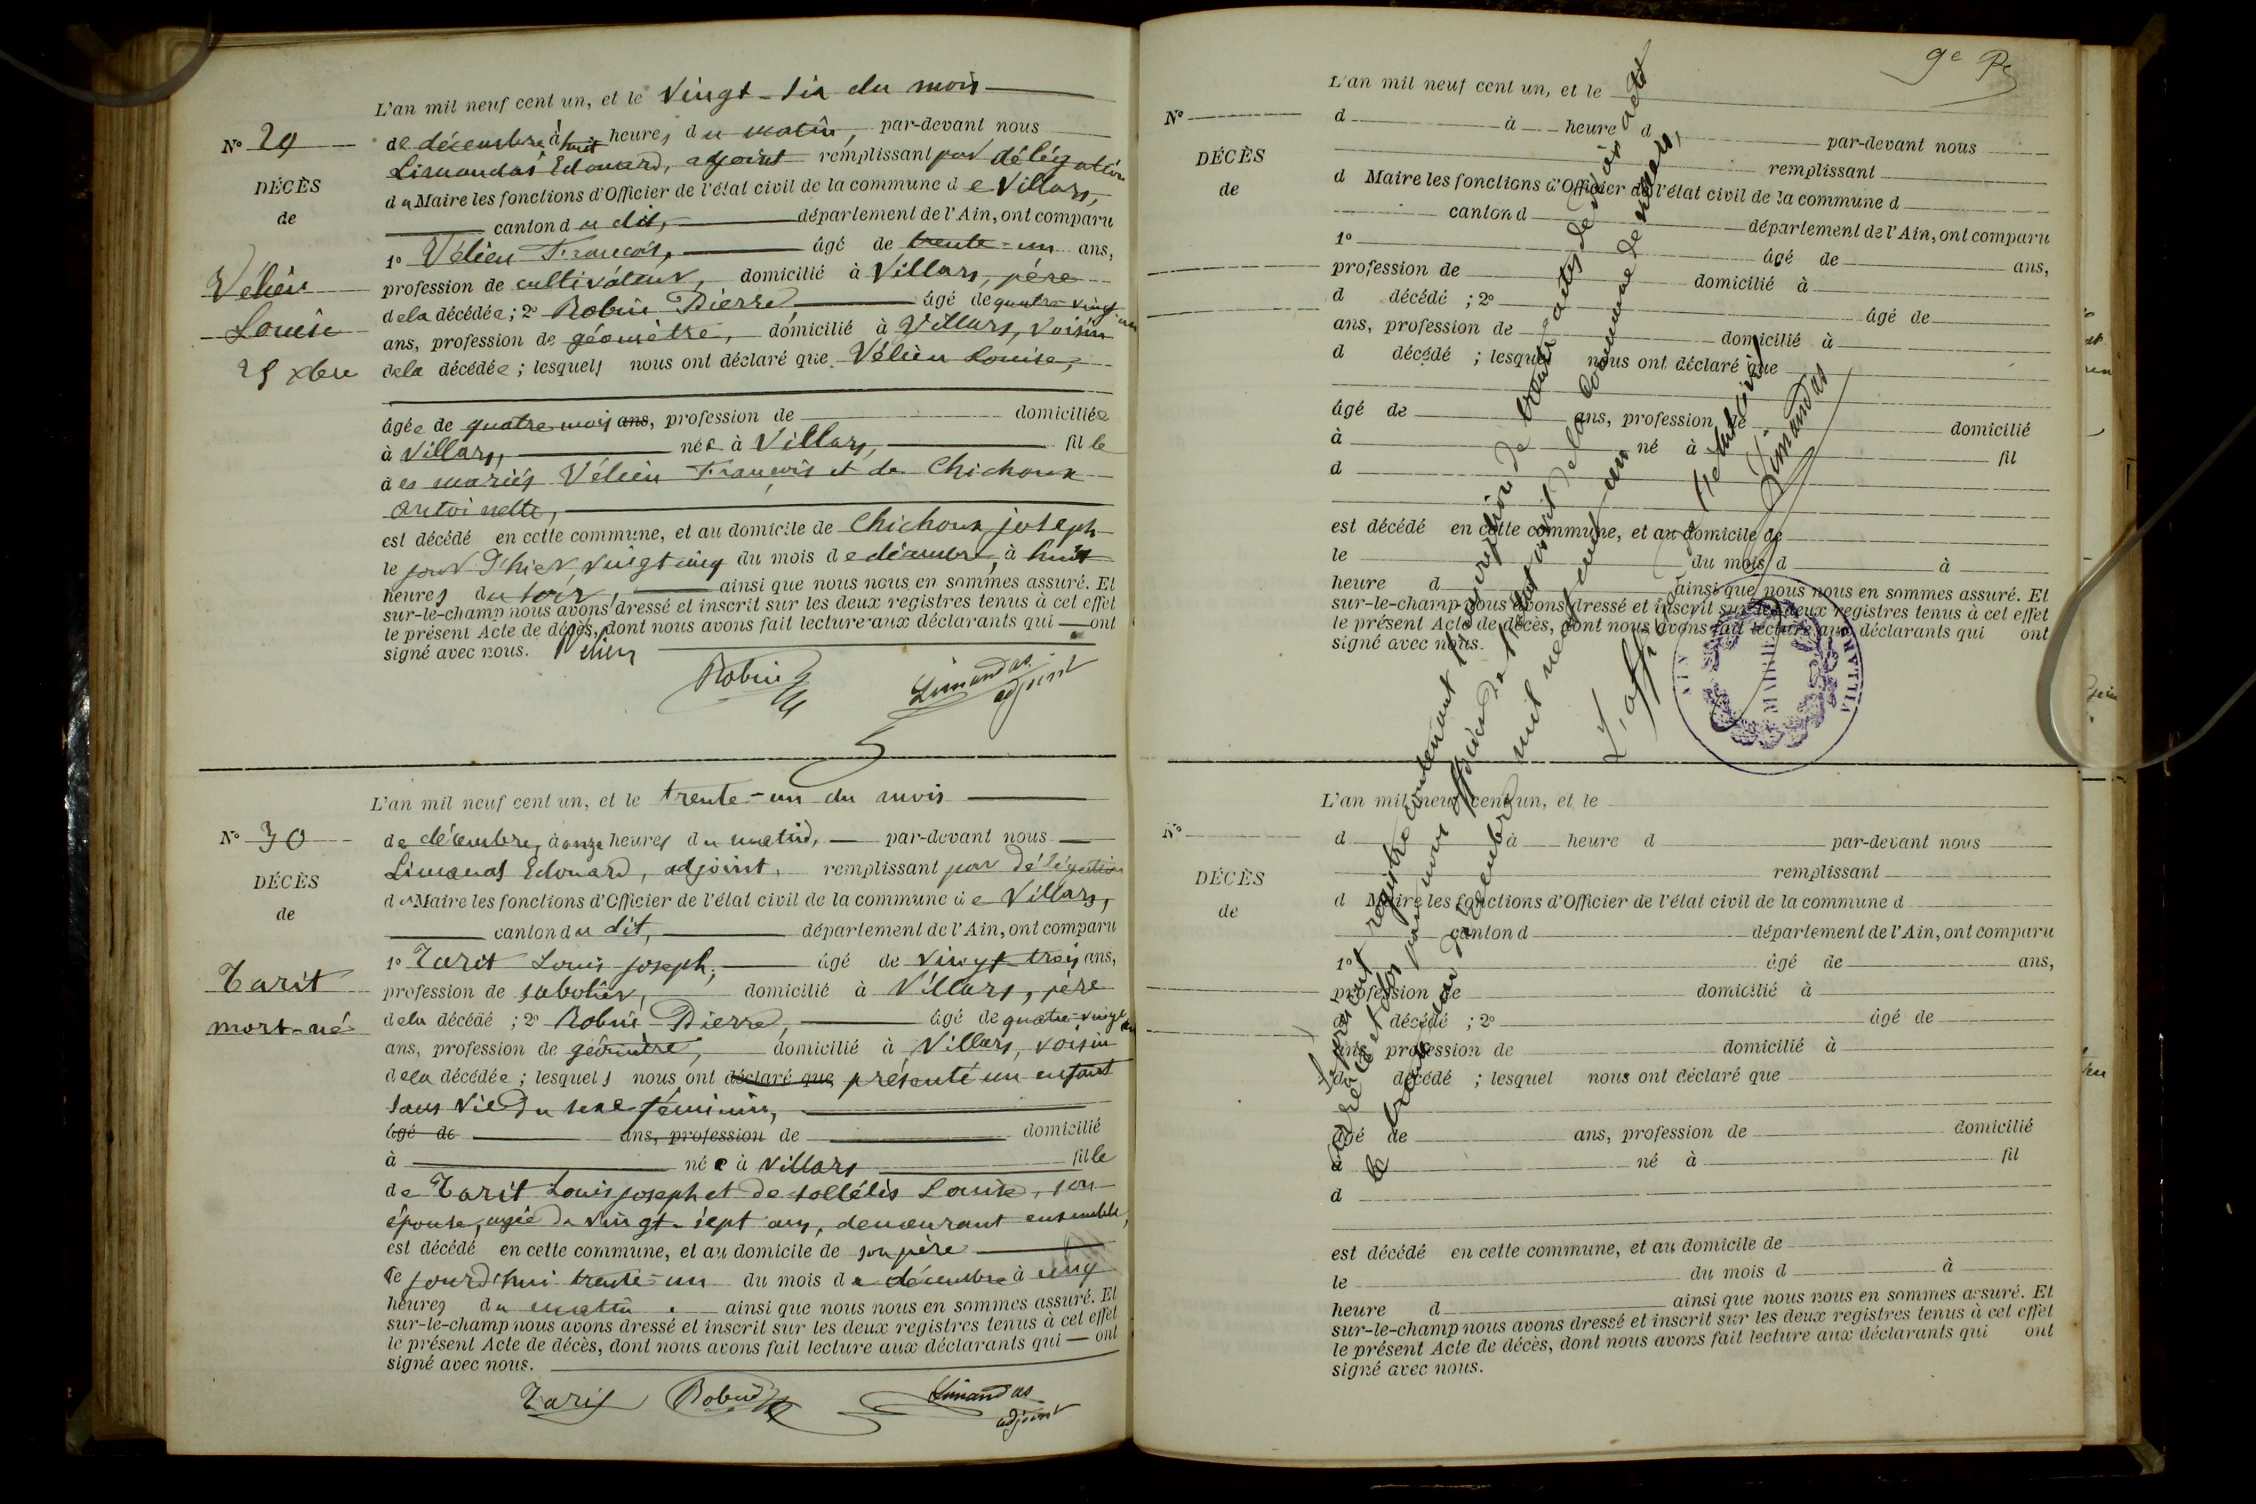 L'an mil neuf cent un, et le Vingt-six du mois
N° 29
de décembre à huit heures du matin, par-devant nous
Limandas Edouard, adjoint remplissant par délégation
DÉCÈS
du Maire les fonctions d'Officier de l'état civil de la commune de Villars,
de
canton du dit, département de l'Ain, ont comparu
1° Vélien François, âgé de trente-un ans,
Vélien
profession de cultivateur, domicilié à Villars, père
de la décédée ; 2° Robin Pierre, âgé de quatre-vingt-un
Louise
ans, profession de géomètre, domicilié à Villars, voisin
25 xbre
de la décédée ; lesquels nous ont déclaré que Vélien Louise,
âgée de quatre mois ans, profession de domiciliée
à Villars, née à Villars, fille
des mariés Vélien François et de Chichoux
Antoinette,
est décédé en cette commune, et au domicile de Chichoux joseph
le jour d'hier, vingt cinq du mois de décembre, à huit
heures du soir, ainsi que nous nous en sommes assuré. Et
sur-le-champ nous avons dressé et inscrit sur les deux registres tenus à cet effet
le présent Acte de décès, dont nous avons fait lecture aux déclarants qui ont
signé avec nous. Vélien
Robin Limandas
adjoint
L'an mil neuf cent un, et le trente-un du mois
N° 30
de décembre, à onze heures du matin, par-devant nous
Limandas Edouard, adjoint, remplissant par délégation
DÉCÈS
du Maire les fonctions d'Officier de l'état civil de la commune de Villars,
de
canton du dit, département de l'Ain, ont comparu
1° Tarit Louis joseph, âgé de vingt-trois ans,
Tarit
profession de sabotier, domicilié à Villars, père
mort-né
de la décédé ; 2° Robin Pierre, âgé de quatre-vingt-un
ans, profession de géomètre, domicilié à Villars, voisin
de la décédée ; lesquels nous ont déclaré que présenté un enfant
sans vie du sexe féminin,
âgé de ans, profession de domicilié
à née à Villars fille
de Tarit Louis joseph et de Louise, son
épouse, agée de vingt-sept ans, demeurant ensemble,
est décédé en cette commune, et au domicile de son père
le jourd'hui trente-un du mois de décembre à cinq
heures du matin. ainsi que nous nous en sommes assuré. Et
sur-le-champ nous avons dressé et inscrit sur les deux registres tenus à cet effet
le présent Acte de décès, dont nous avons fait lecture aux déclarants qui ont
signé avec nous.
Tarit Robin Limandas
adjoint
9e
L'an mil neuf cent un, et le
N°
d à heure d par-devant nous
DÉCÈS
remplissant
de
d Maire les fonctions d'Officier de l'état civil de la commune d
canton d département de l'Ain, ont comparu
1° âgé de ans,
profession de domicilié à
d décédé ; 2° âgé de
ans, profession de domicilié à
d décédé ; lesquel nous ont déclaré que
âgé de ans, profession de domicilié
à né à fil
d
est décédé en cette commune, et au domicile de
le du mois d à
heure d ainsi que nous nous en sommes assuré. Et
sur-le-champ nous avons dressé et inscrit sur les deux registres tenus à cet effet
le présent Acte de décès, dont nous avons fait lecture aux déclarants qui ont
signé avec nous.
Le présent registre contenant l'inscription de trente actes de décès a été
clos par nous officier de l'état civil de la commune de Villars,
le trente-un Décembre mil neuf cent un
L'officier de l'état civil
Limandas
MAIRIE
VILLARS
AIN
L'an mil neuf cent un, et le
N°
d à heure d par-devant nous
remplissant
DÉCÈS
d Maire les fonctions d'Officier de l'état civil de la commune d
de
canton d département de l'Ain, ont comparu
1° âgé de ans,
profession de domicilié à
d décédé ; 2° âgé de
ans, profession de domicilié à
d décédé ; lesquel nous ont déclaré que
âgé de ans, profession de domicilié
à né à fil
d
est décédé en cette commune, et au domicile de
le du mois d à
heure d ainsi que nous nous en sommes assuré. Et
sur-le-champ nous avons dressé et inscrit sur les deux registres tenus à cet effet
le présent Acte de décès, dont nous avons fait lecture aux déclarants qui ont
signé avec nous.